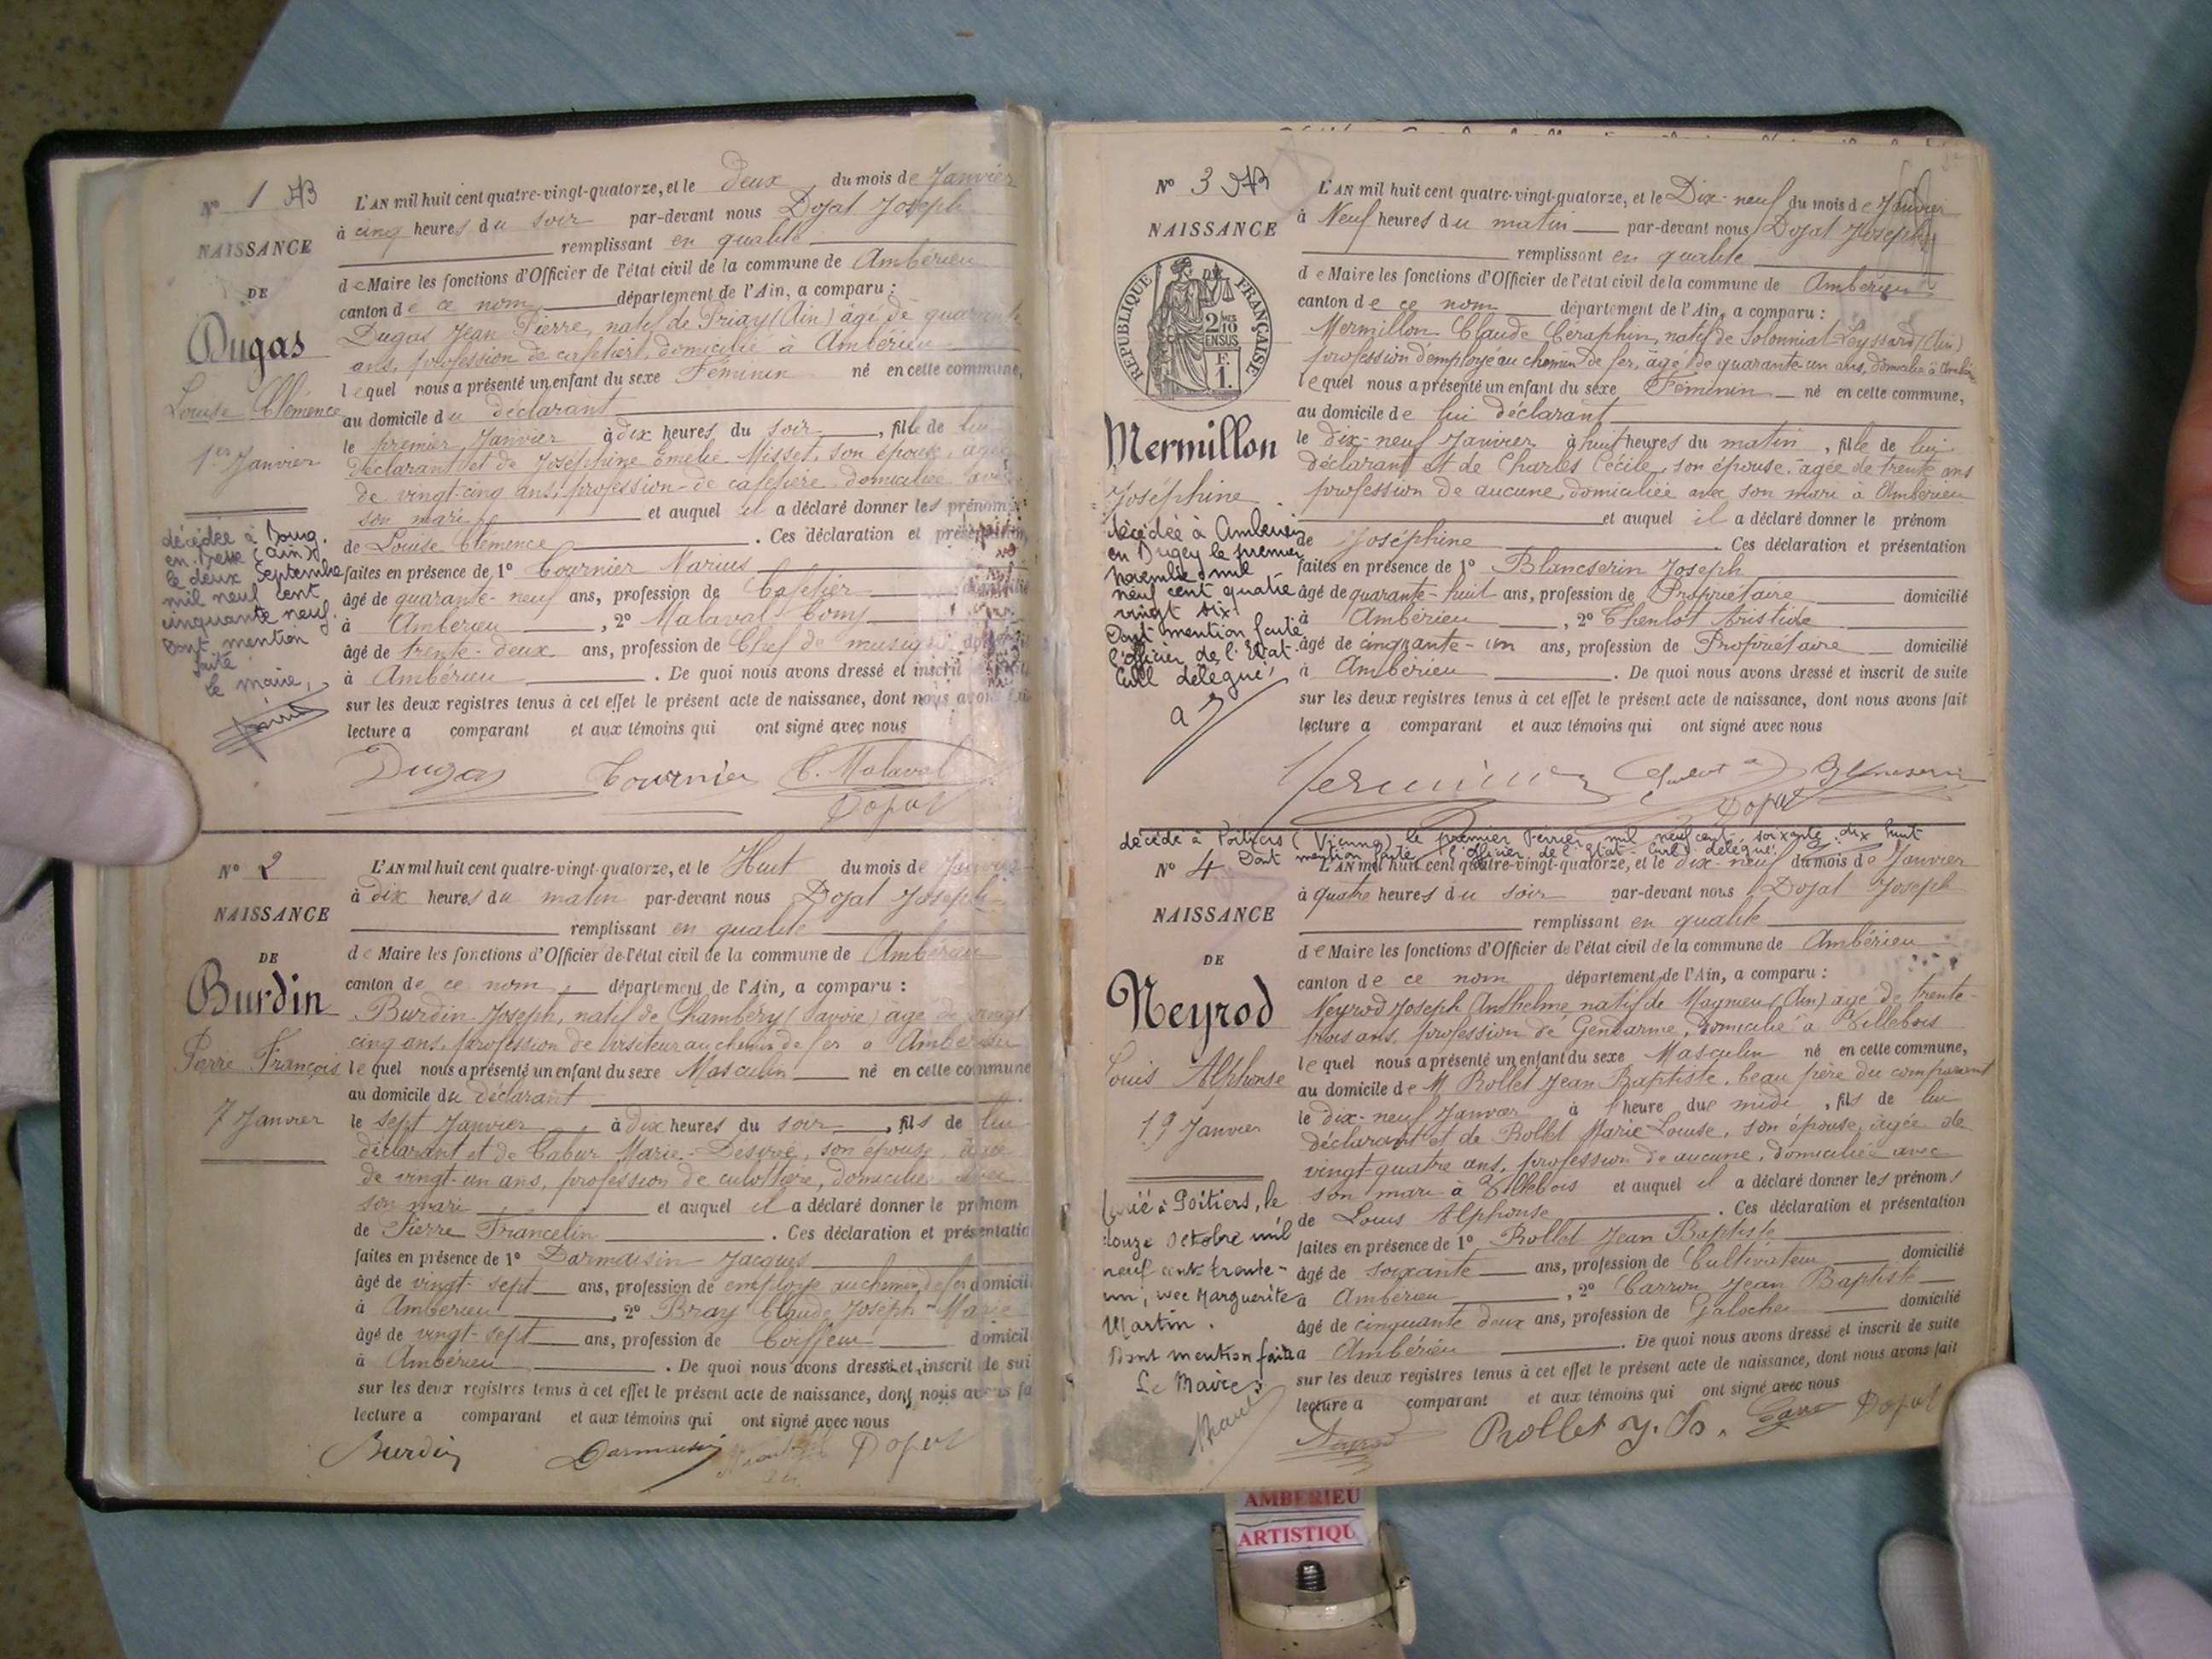 N° 1
NAISSANCE
DE
Dugas
Louise Clémence
1er Janvier
décédée à Bourg
en Bresse (Ain)
le deux Septembre
mil neuf cent
cinquante neuf.
Dont mention
faite
le maire,
L'AN mil huit cent quatre-vingt-quatorze, et le deux du mois de Janvier
à cinq heures du soir par-devant nous Dojat Joseph
remplissant en qualité
de Maire les fonctions d'Officier de l'état civil de la commune de Ambérieu
canton de ce nom département de l'Ain, a comparu :
Dugas Jean Pierre, natif de Priay (Ain) âgé de quarante
ans, profession de cafetier, domicilié à Ambérieu
lequel nous a présenté un enfant du sexe Féminin né en cette commune,
au domicile du déclarant
le premier Janvier à dix heures du soir, fille de lui
déclarant et de Joséphine Emelie Misset, son épouse, âgée
de vingt-cinq ans, profession de cafetière, domiciliée avec
son mari et auquel il a déclaré donner les prénoms
de Louise Clémence. Ces déclaration et présentation
faites en présence de 1° Tournier Marius
âgé de quarante-neuf ans, profession de Cafetier
à Ambérieu, 2° Malaval Tony
âgé de trente-deux ans, profession de Chef de musique
à Ambérieu. De quoi nous avons dressé et inscrit
sur les deux registres tenus à cet effet le présent acte de naissance, dont nous avons
lecture a comparant et aux témoins qui ont signé avec nous
Dugas Tournier C. Malaval
Dojat
N° 2
NAISSANCE
DE
Burdin
Pierre François
7 Janvier
L'AN mil huit cent quatre-vingt-quatorze, et le Huit du mois de Janvier
à dix heures du matin par-devant nous Dojat Joseph
remplissant en qualité
de Maire les fonctions d'Officier de l'état civil de la commune de Ambérieu
canton de ce nom département de l'Ain, a comparu :
Burdin Joseph, natif de Chambéry (Savoie) âgé de vingt
cinq ans, profession de visiteur au chemin de fer à Ambérieu
lequel nous a présenté un enfant du sexe Masculin né en cette commune
au domicile du déclarant
le sept Janvier à dix heures du soir, fils de lui
déclarant et de Cabur Marie-Desirée, son épouse, âgée
de vingt-un ans, profession de culottière, domiciliée avec
son mari et auquel il a déclaré donner le prénom
de Pierre Francelin. Ces déclaration et présentatio
faites en présence de 1° Darmaisin Jacques
âgé de vingt-sept ans, profession de employé au chemin de fer domicil
à Ambérieu, 2° Bray Claude Joseph-Marie
âgé de vingt-sept ans, profession de Coiffeur domicil
à Ambérieu. De quoi nous avons dressé et inscrit de sui
sur les deux registres tenus à cet effet le présent acte de naissance, dont nous avons fa
lecture a comparant et aux témoins qui ont signé avec nous
Burdin Darmaisin Dojat
N° 3
NAISSANCE
RÉPUBLIQUE FRANÇAISE
2/10 EN SUS
F. 1.
Mermillon
Joséphine
décédée à Ambérieu
en Bugey le premier
novembre mil
neuf cent quatre
vingt six
Dont mention faite
l'officier de l'Etat
Civil délégué
L'AN mil huit cent quatre-vingt-quatorze, et le Dix-neuf du mois de Janvier
à Neuf heures du matin par-devant nous Dojat Joseph
remplissant en qualité
de Maire les fonctions d'Officier de l'état civil de la commune de Ambérieu
canton de ce nom département de l'Ain, a comparu :
Mermillon Claude Céraphin, natif de Solonniat-Leyssard (Ain)
profession d'employé au chemin de fer, âgé de quarante-un ans, domicilié à Ambérieu
lequel nous a présenté un enfant du sexe Féminin né en cette commune,
au domicile de lui déclarant
le dix-neuf Janvier à huit heures du matin, fille de lui
déclarant et de Charles Cécile, son épouse, âgée de trente ans
profession de aucune, domiciliée avec son mari à Ambérieu
et auquel il a déclaré donner le prénom
de Joséphine. Ces déclaration et présentation
faites en présence de 1° Blancserin Joseph
âgé de quarante-huit ans, profession de Propriétaire domicilié
à Ambérieu, 2° Chenlot Aristide
âgé de cinquante-un ans, profession de Propriétaire domicilié
à Ambérieu. De quoi nous avons dressé et inscrit de suite
sur les deux registres tenus à cet effet le présent acte de naissance, dont nous avons fait
lecture a comparant et aux témoins qui ont signé avec nous
Dojat
décédé à Poitiers (Vienne) le premier Février mil neuf cent soixante dix huit
Dont mention faite l'officier de l'état-civil délégué.
N° 4
NAISSANCE
DE
Neyrod
Louis Alphonse
19 Janvier
Marié à Poitiers, le
douze Octobre mil
neuf cent trente-
un, avec Marguerite
Martin.
Dont mention faite
Le Maire
L'AN mil huit cent quatre-vingt-quatorze, et le dix-neuf du mois de Janvier
à quatre heures du soir par-devant nous Dojat Joseph
remplissant en qualité
de Maire les fonctions d'Officier de l'état civil de la commune de Ambérieu
canton de ce nom département de l'Ain, a comparu :
Neyrod Joseph Anthelme natif de Magnieu (Ain) âgé de trente-
trois ans, profession de Gendarme, domicilié à Villebois
lequel nous a présenté un enfant du sexe Masculin né en cette commune,
au domicile de M Rollet Jean Baptiste, beau père du comparant
le dix-neuf Janvier à heure du midi, fils de lui
déclarant et de Rollet Marie Louise, son épouse, âgée de
vingt-quatre ans, profession de aucune, domiciliée avec
son mari à Villebois et auquel il a déclaré donner les prénoms
de Louis Alphonse. Ces déclaration et présentation
faites en présence de 1° Rollet Jean Baptiste
âgé de soixante ans, profession de Cultivateur domicilié
à Ambérieu, 2° Carron Jean Baptiste
âgé de cinquante deux ans, profession de Galocher domicilié
à Ambérieu. De quoi nous avons dressé et inscrit de suite
sur les deux registres tenus à cet effet le présent acte de naissance, dont nous avons fait
lecture a comparant et aux témoins qui ont signé avec nous
Neyrod Rollet J. B. Dojat
AMBERIEU
ARTISTIQU